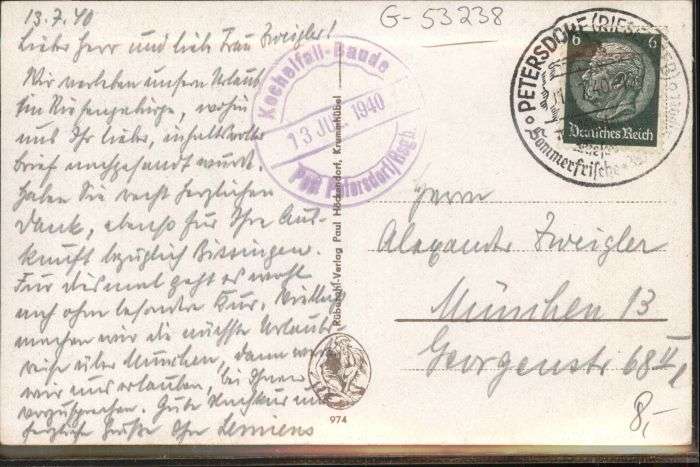 13.7.40
G-53238
Lieber Herr und liebe Frau Zweigler!
Wir verleben unsern Urlaub
im Riesengebirge, wohin
uns Ihr lieber, inhaltsvoller
Brief nachgesandt wurde.
Haben Sie recht herzlichen
Dank, ebenso für Ihre Aus-
kunft bezüglich Kissingen.
Für diesmal geht es wohl
auch ohne besondre Kur. Vielleicht
machen wir die nächste Urlaubs-
reise über München, dann werden
wir uns erlauben, bei Ihnen
vorzusprechen. Gute Nachkur und
herzliche Grüße Ihr Lemiens
Kochelfall-Baude
13 JUL. 1940
Post Petersdorf/Rsgb.
PETERSDORF (RIESENGEB)
Sommerfrische
6 6
Deutsches Reich
Rübezahl-Verlag Paul Höckendorf, Krummhübel
974
Herrn
Alexander Zweigler
München 13
Georgenstr 68 II
8,-